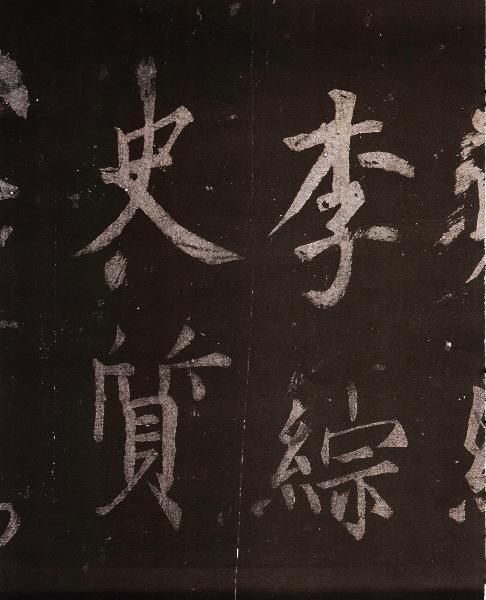 李綜
史質